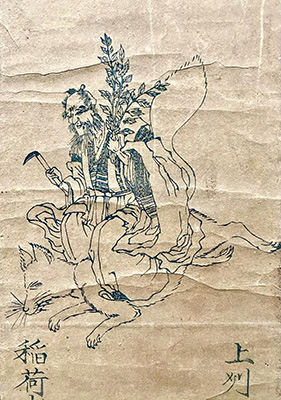 上州
稲荷